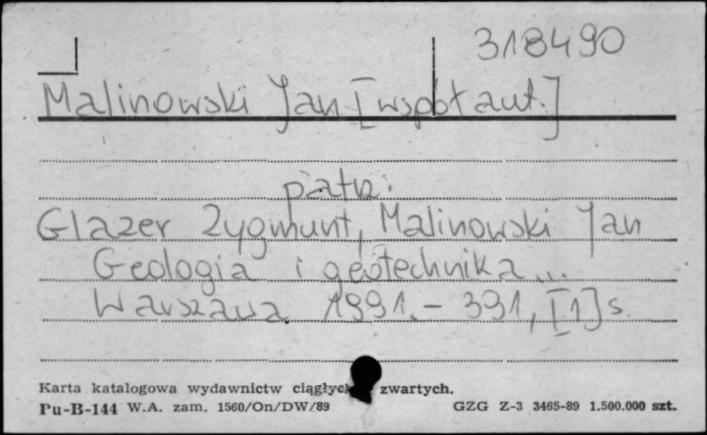 318490
Malinowski Jan [współaut.]
patrz:
Glazer Zygmunt, Malinowski Jan
Geologia i geotechnika...
Warszawa 1991. - 391, [1] s.
Karta katalogowa wydawnictw ciągłych zwartych.
Pu-B-144 W.A. zam. 1560/On/DW/89 GZG Z-3 3465-89 1.500.000 szt.